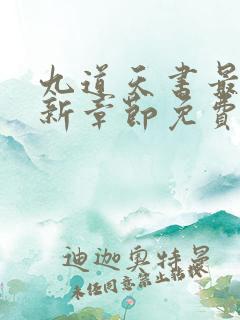 九道天书最
新章节免费
迪迦奥特曼
未经同意禁止转载